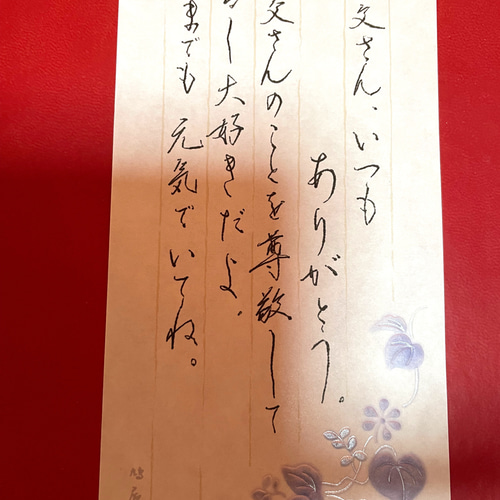 父さん、いつも
ありがとう。
父さんのことを尊敬して
るし大好きだよ。
までも 元気でいてね。
鳩居